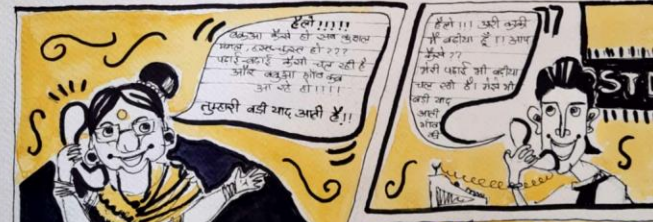 हैलो !!!!!
बबुआ कैसे हो सब कुशल
मंगल, हस्ट-पुस्ट हो ???
पढाई-वढाई कैसी चल रही है
और बबुआ गाँव कब
आ रहे हो !!!!
तुम्हारी बडी याद आती है !!
हैलो !!! अरी काकी
मैं बढीया हूँ !! आप
कैसे ??
मेरी पढाई भी बढीया
चल रही है। मुझे भी
बडी याद
आती
गाँव
की
STD